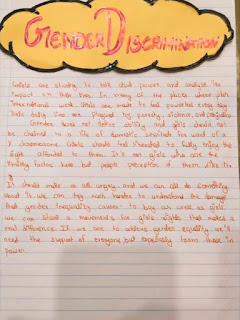 GENDER DISCRIMINATION
Girls are starting to talk about power and analyse the
impact on their lives. In many of the places where plan
International work Girls are made to feel powerless every day
their daily lives are plagued by poverty, violence and
Gender does not define ability, and girls should not
be chained to a life of domestic servitude for want of a
Y chromosome. Girls should feel liberated to fully enjoy the
right afforded to them. It's not girls who are the
limiting factors here but people perception of them like
It should make us all angry, and we can all do something
about it. we can try much harder to understand the damage
that gender inequality causes to boy as well as girls.
we can start a movements for girls rights that makes a
real difference. If we are to address gender equality we'll
need the support of everyone but especially from those in
power.